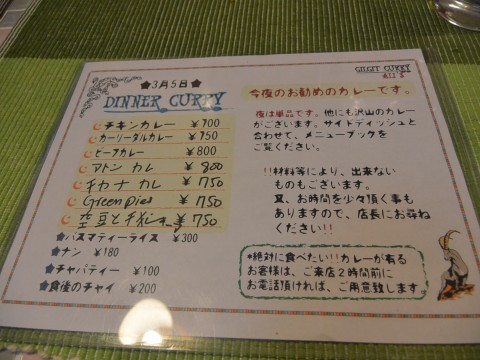 GILGIT CURRY
ALI'S
★3月5日★
DINNER CURRY
チキンカレー ￥700
カーリーダルカレー ￥750
ビーフカレー ￥800
マトン カレ ￥800
チカナ カレ ￥750
Green pies ￥750
空豆と チキン ￥750
★バスマティーライス ￥300
★ナン ￥180
★チャパティー ￥100
★食後のチャイ ￥200
今夜のお勧めのカレーです。
夜は単品です。他にも沢山のカレー
がございます。サイドディッシュと
合わせて、メニューブックを
ご覧ください。
!!材料等により、出来ない
ものもございます。
又、お時間を少々頂く事も
ありますので、店長にお尋ね
ください!!
*絶対に食べたい!!カレーが有る
お客様は、ご来店2時間前に
お電話頂ければ、ご用意致します